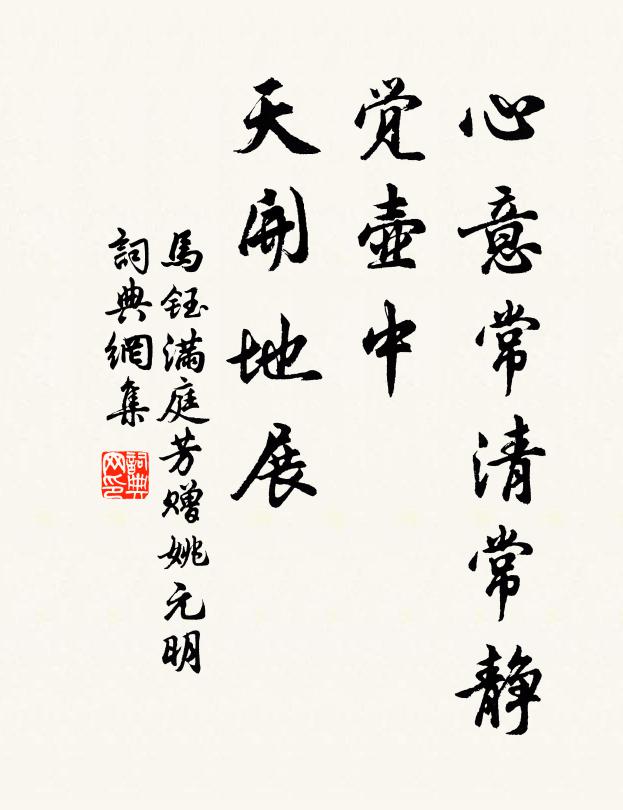 心意常清常静
觉壶中
天開地展
馬钰满庭芳赠姚元明
詞典網集
詞典网印